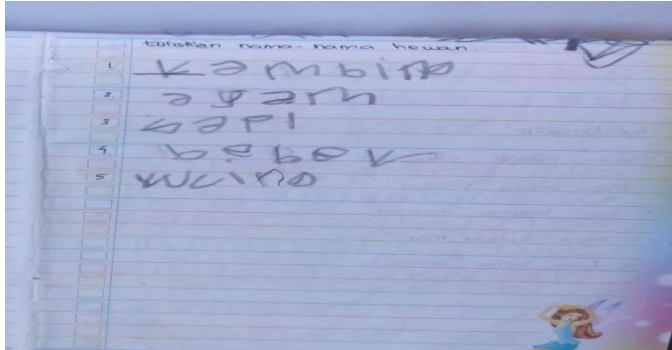 tuliskan nama-nama hewan.
1. Kambing
2. ayam
3 sapi
4 bebek
5 kucing